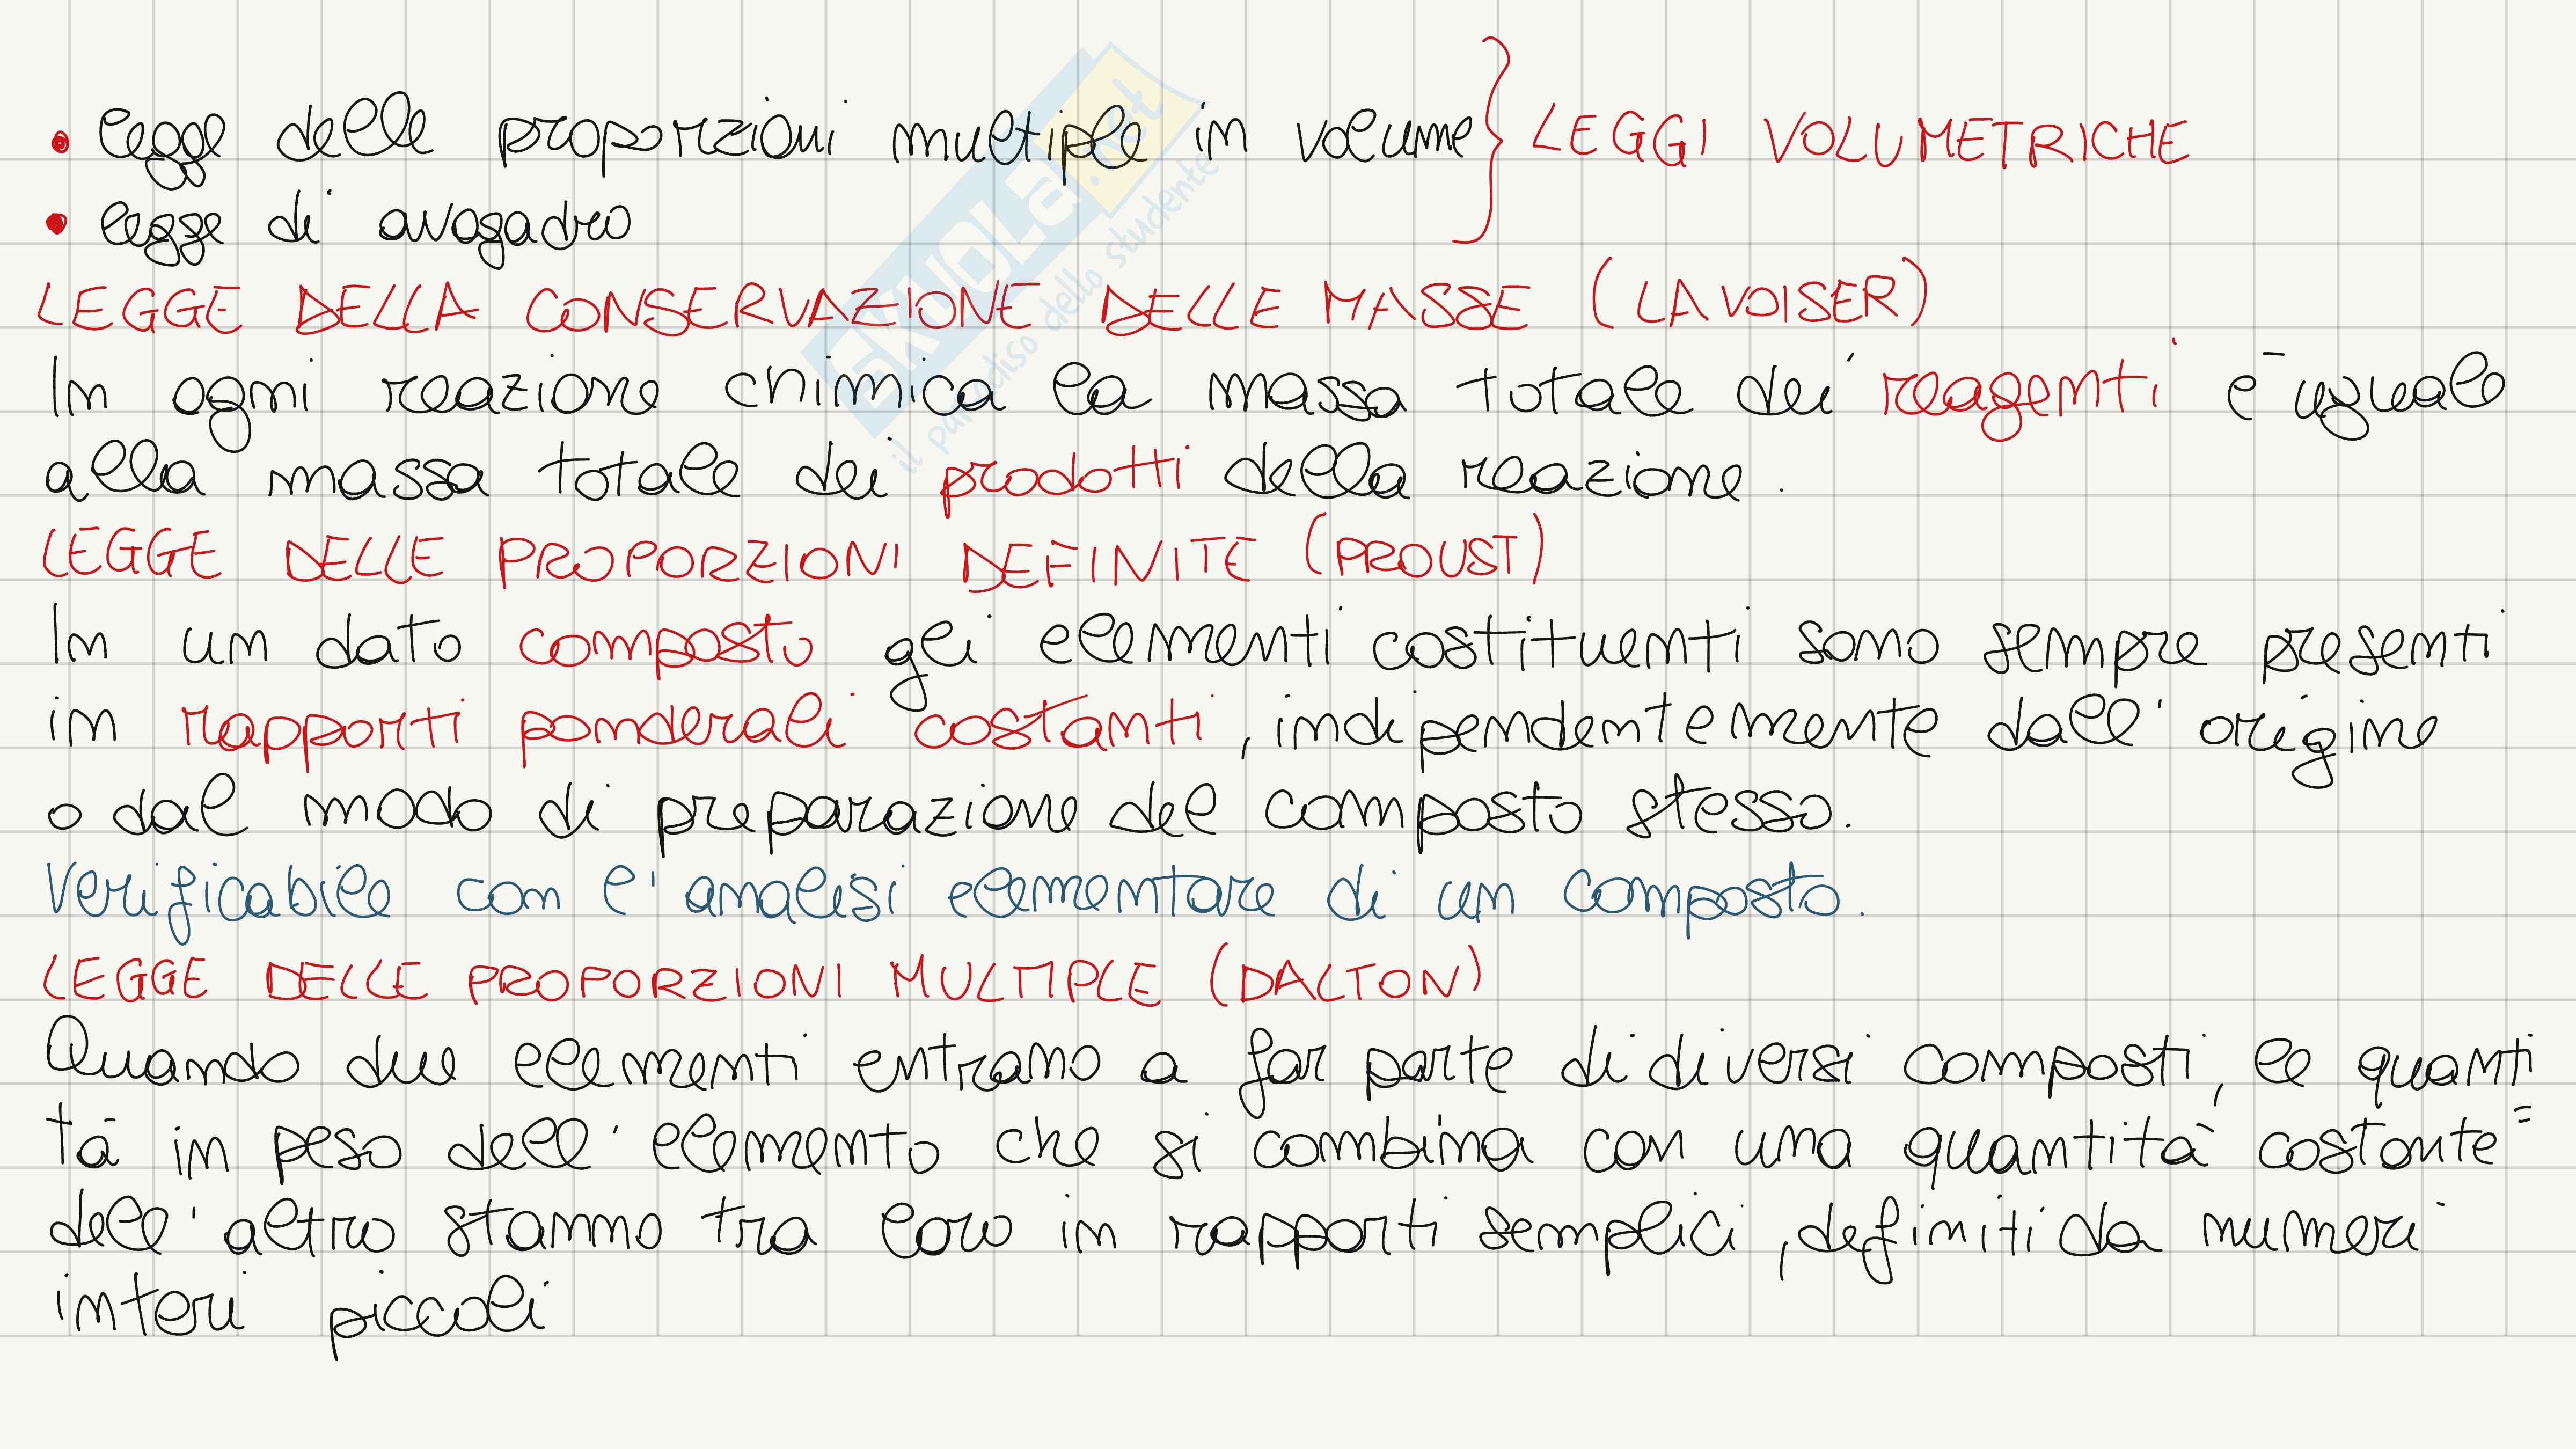 • legge delle proporzioni multiple in volume } LEGGI VOLUMETRICHE
• legge di avogadro
LEGGE DELLA CONSERVAZIONE DELLE MASSE (LAVOISER)
In ogni reazione chimica la massa totale dei reagenti è uguale
alla massa totale dei prodotti della reazione.
LEGGE DELLE PROPORZIONI DEFINITE (PROUST)
In un dato composto gli elementi costituenti sono sempre presenti
in rapporti ponderali costanti, indipendentemente dall'origine
o dal modo di preparazione del composto stesso.
Verificabile con l'analisi elementare di un composto.
LEGGE DELLE PROPORZIONI MULTIPLE (DALTON)
Quando due elementi entrano a far parte di diversi composti, le quanti=
tà in peso dell'elemento che si combina con una quantità costante
dell'altro stanno tra loro in rapporti semplici, definiti da numeri
interi piccoli
SKUOLA.net
il paradiso dello studente